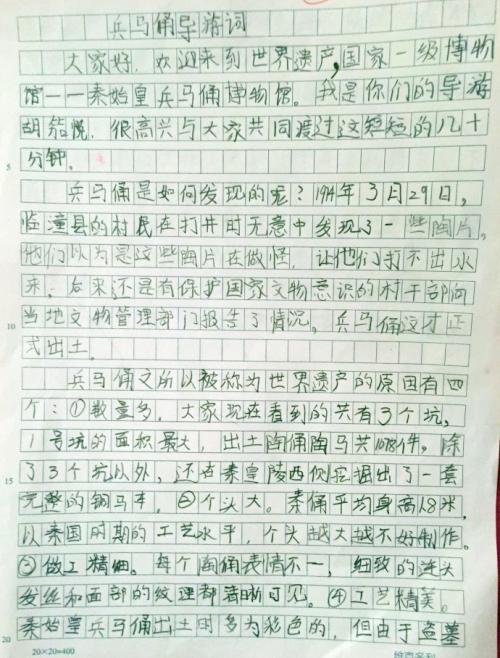 兵马俑导游词
大家好，欢迎来到世界遗产，国家一级博物
馆——秦始皇兵马俑博物馆。我是你们的导游
胡悦，很高兴与大家共同渡过这短短的几十
5
分钟。
兵马俑是如何发现的呢？1974年3月29日，
临潼县的村民在打井时无意中发现了一些陶片，
他们以为是这些陶片在做怪，让他们打不出水
来，后来还是有保护国家文物意识的村干部向
10
当地文物管理部门报告了情况。兵马俑这才正
式出土。
兵马俑之所以被称为世界遗产的原因有四
个：①数量多，大家现在看到的共有3个坑，
1号坑的面积最大，出土陶俑陶马共件，除
15
了3个坑以外，还在秦皇陵西侧挖掘出了一套
完整的铜马车，②个头大。秦俑平均身高1.8米，
以秦国时期的工艺水平，个头越大越不好制作。
③做工精细。每个陶俑表情不一，细致的连头
发丝和面部的纹理都清晰可见。④工艺精美。
20
秦始皇兵马俑出土时多为彩色的，但由于盗墓
20×20=400